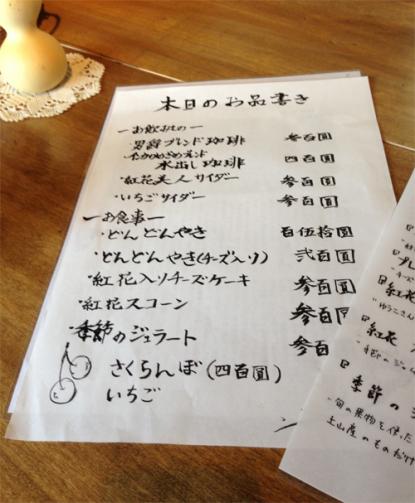 本日のお品書き
ーお飲みものー
男爵ブレンド珈琲 参百圓
水出し珈琲 四百圓
・紅花美人サイダー 参百圓
・いちごサイダー 参百圓
ーお食事ー
・どんどんやき 百伍拾圓
・どんどんやき(チーズ入り) 弐百圓
・紅花入りチーズケーキ 参百圓
・紅花スコーン 参百
・季節のジェラート 参百
さくらんぼ(四百圓)
いちご
紅花
紅花
季節の
・旬の果物を使った
土山産のものだけ